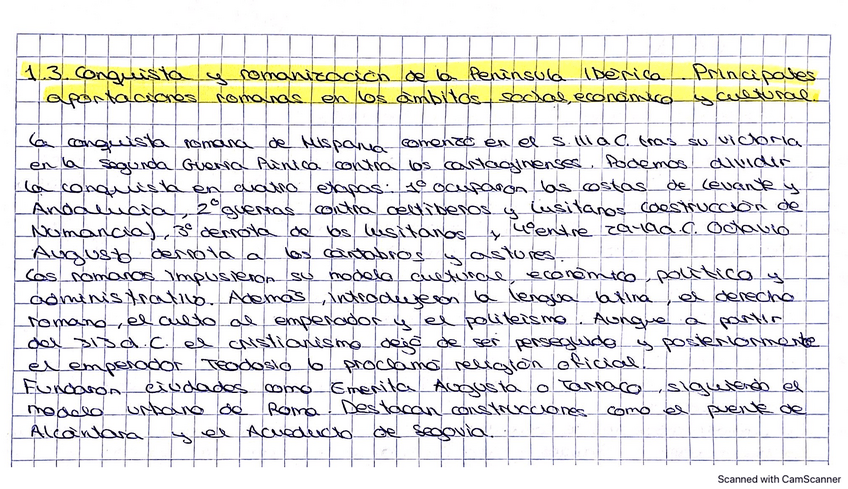 1.3. Conquista y romanización de la Península Ibérica. Principales
aportaciones romanas en los ámbitos social, económico y cultural.
La conquista romana de Hispania comenzó en el s.III a.C. tras su victoria
en la Segunda Guerra Púnica contra los cartaginenses. Podemos dividir
la conquista en cuatro etapas: 1º ocuparon las costas de Levante y
Andalucía, 2º guerras contra celtíberos y lusitanos (destrucción de
Numancia), 3º derrota de los lusitanos y 4º entre 29-19a.C. Octavio
Augusto derrota a los cántabros y astures.
Los romanos impusieron su modelo cultural, económico, político y
administrativo. Además, introdujeron la lengua latina, el derecho
romano, el culto al emperador y el politeísmo. Aunque a partir
del 313 d.C. el cristianismo dejó de ser perseguido y posteriormente
el emperador Teodosio lo proclamó religión oficial.
Fundaron ciudades como Emerita Augusta o Tarraco, siguiendo el
modelo urbano de Roma. Destacan construcciones como el puente de
Alcántara y el Acueducto de Segovia.
Scanned with CamScanner